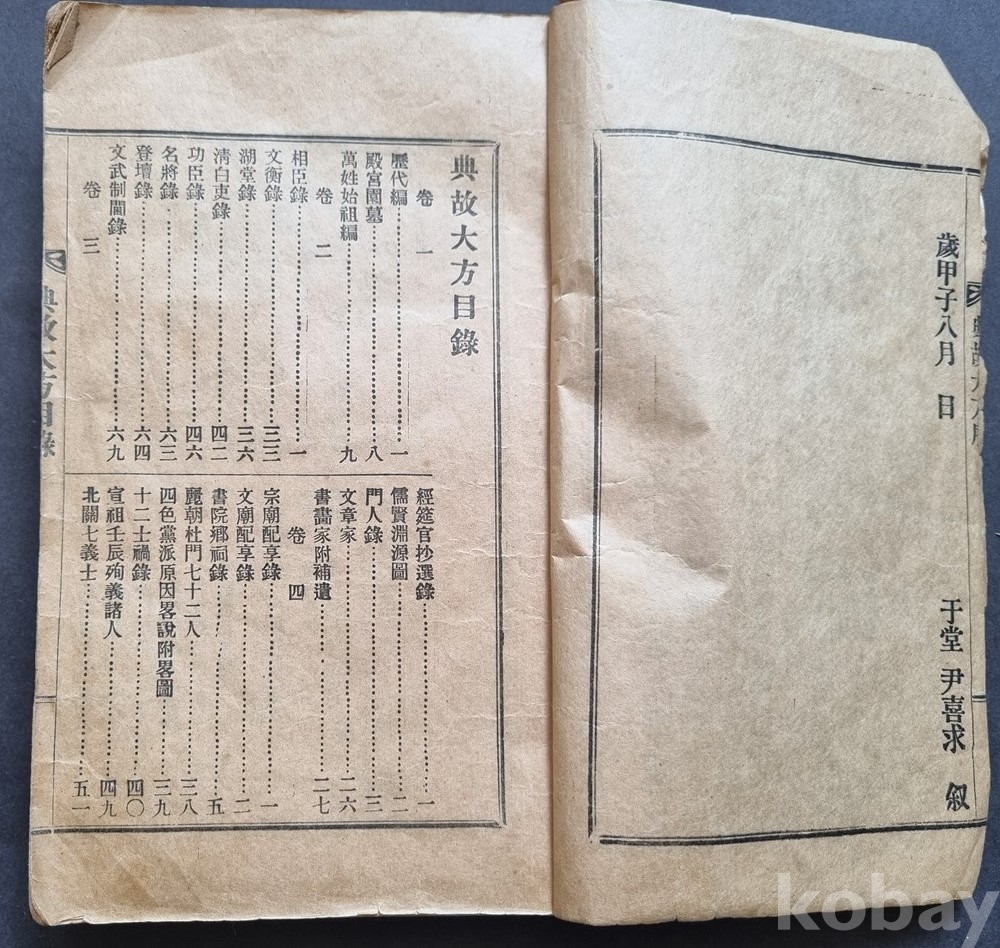 歲甲子八月 日 于堂 尹喜求 叙
典故大方目錄
卷一
歷代編 一
殿宮園墓 八
萬姓始祖編 九
卷二
相臣錄 一
文衡錄 三三
湖堂錄 三六
淸白吏錄 四二
功臣錄 四六
名將錄 六三
登壇錄 六四
文武制閫錄 六九
卷三
經筵官抄選錄 一
儒賢淵源圖 二
門人錄 三
文章家 二六
書畵家附補遺 二七
卷四
宗廟配享錄 一
文廟配享錄 二
書院鄕祠錄 五
麗朝杜門七十二人 三八
四色黨派原因畧說附畧圖 三九
十二士禍錄 四〇
宣祖壬辰殉義諸人 四九
北關七義士 五一
典故大方目錄
kobay